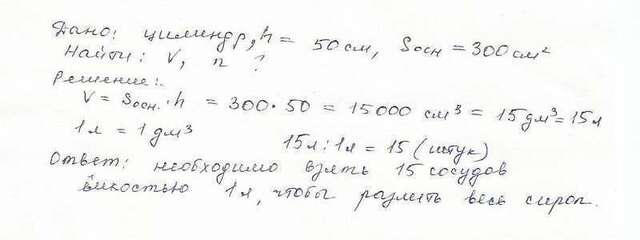 Дано: цилиндр, h = 50 см, Sосн = 300 см²
Найти: V, n ?
Решение:
V = Sосн. · h = 300 · 50 = 15000 см³ = 15 дм³ = 15 л
1 л = 1 дм³ 15 л : 1 л = 15 (штук)
Ответ: необходимо взять 15 сосудов
ёмкостью 1 л, чтобы разлить весь сироп.